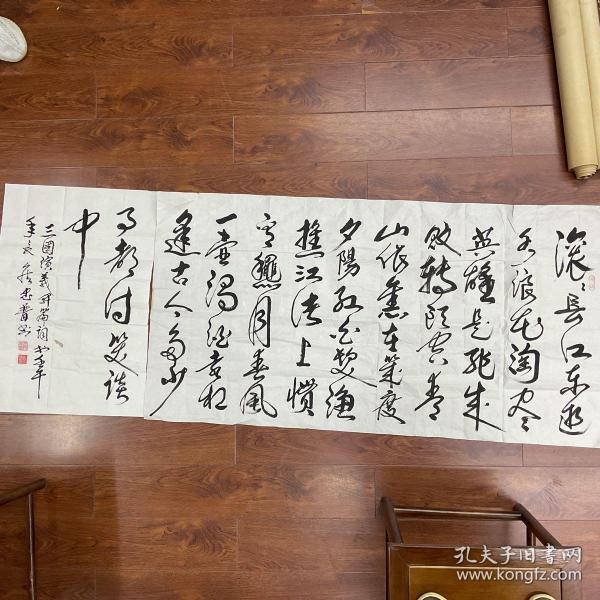 滚滚長江东逝
水浪花淘尽
英雄是非成
敗转头空青
山依舊在几度
夕陽红白髪渔
樵江渚上惯
看秋月春風
一壶濁酒喜相
逢古今多少
事都付笑谈
中
三國演義开篇词
孔夫子旧书网
www.kongfz.com